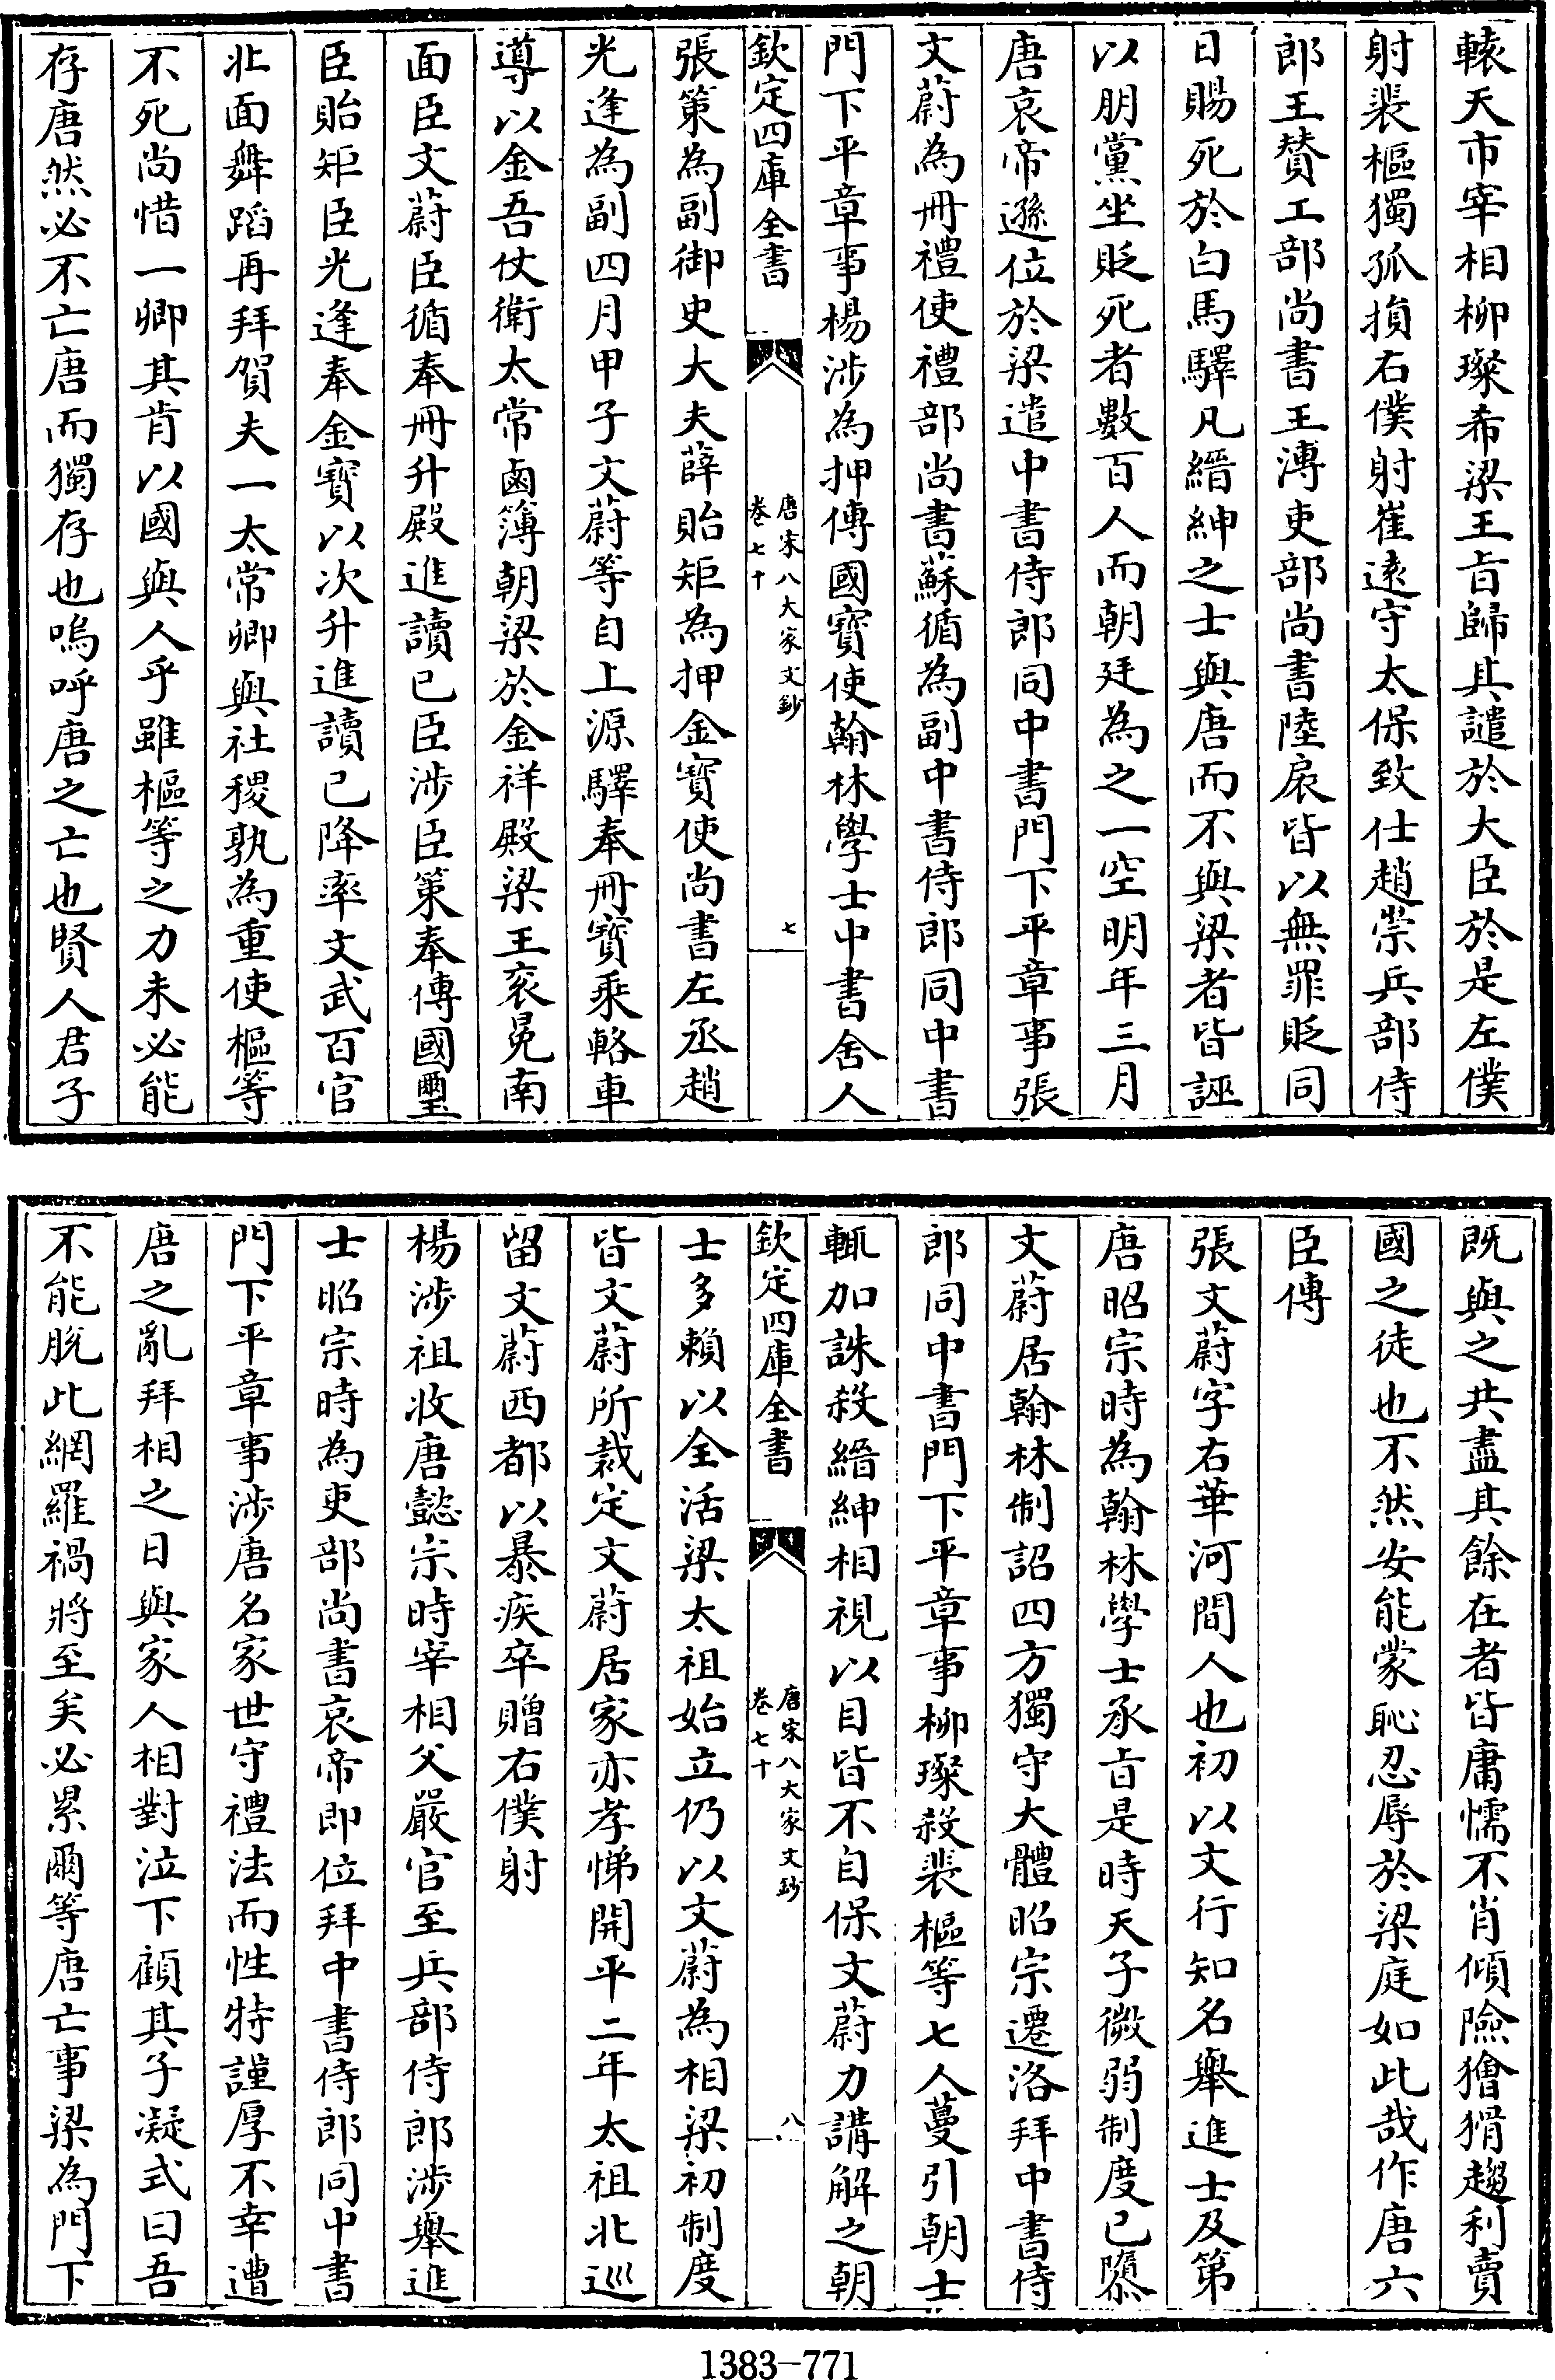 轅天市宰相柳璨希梁王旨歸其譴於大臣於是左僕
射裴樞獨孤損右僕射崔遠守太保致仕趙崇兵部侍
郎王贊工部尚書王溥吏部尚書陸扆皆以無罪貶同
日賜死於白馬驛凡縉紳之士與唐而不與梁者皆誣
以朋黨坐貶死者數百人而朝廷為之一空明年三月
唐哀帝遜位於梁遣中書侍郎同中書門下平章事張
文蔚為冊禮使禮部尚書蘇循為副中書侍郎同中書
門下平章事楊涉為押傳國寶使翰林學士中書舍人
欽定四庫全書
唐宋八大家文鈔
卷七十
七
張策為副御史大夫薛貽矩為押金寶使尚書左丞趙
光逢為副四月甲子文蔚等自上源驛奉冊寶乘輅車
導以金吾仗衛太常鹵簿朝梁於金祥殿梁王衮冕南
面臣文蔚臣循奉冊升殿進讀已臣涉臣策奉傳國璽
臣貽矩臣光逢奉金寶以次升進讀已降率文武百官
北面舞蹈再拜賀夫一太常卿與社稷孰為重使樞等
不死尚惜一卿其肯以國與人乎雖樞等之力未必能
存唐然必不亡唐而獨存也嗚呼唐之亡也賢人君子
既與之共盡其餘在者皆庸懦不肖傾險獪猾趨利賣
國之徒也不然安能蒙恥忍辱於梁庭如此哉作唐六
臣傳
張文蔚字右華河間人也初以文行知名舉進士及第
唐昭宗時為翰林學士承旨是時天子微弱制度已隳
文蔚居翰林制詔四方獨守大體昭宗遷洛拜中書侍
郎同中書門下平章事柳璨殺裴樞等七人蔓引朝士
輒加誅殺縉紳相視以目皆不自保文蔚力講解之朝
欽定四庫全書
唐宋八大家文鈔
卷七十
八
士多賴以全活梁太祖始立仍以文蔚為相梁初制度
皆文蔚所裁定文蔚居家亦孝悌開平二年太祖北巡
留文蔚西都以暴疾卒贈右僕射
楊涉祖收唐懿宗時宰相父嚴官至兵部侍郎涉舉進
士昭宗時為吏部尚書哀帝即位拜中書侍郎同中書
門下平章事涉唐名家世守禮法而性特謹厚不幸遭
唐之亂拜相之日與家人相對泣下顧其子凝式曰吾
不能脫此網羅禍將至矣必累爾等唐亡事梁為門下
1383-771